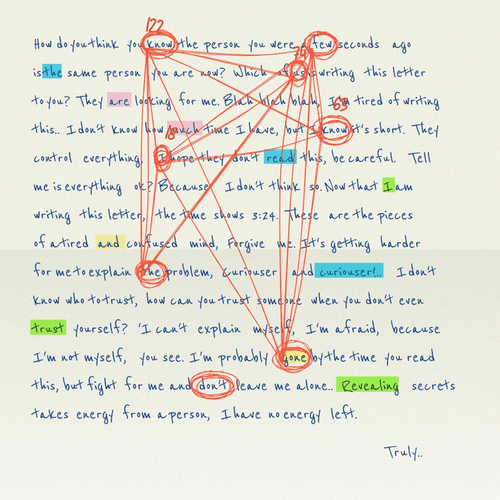 122
How do you think you know the person you were a few seconds ago
is the same person you are now? Which of us is writing this letter
to you? They are looking for me. Blah blah blah, I'm tired of writing
this.. I don't know how much time I have, but I know it's short. They
control everything, I hope they don't read this, be careful. Tell
me is everything ok? Because I don't think so. Now that I am
writing this letter, the time shows 3:24. These are the pieces
of a tired and confused mind, Forgive me. It's getting harder
for me to explain the problem, curiouser and curiouser!.. I don't
know who to trust, how can you trust someone when you don't even
trust yourself? 'I can't explain myself, I'm afraid, because
I'm not myself, you see. I'm probably gone by the time you read
this, but fight for me and don't leave me alone.. Revealing secrets
takes energy from a person, I have no energy left.
Truly..